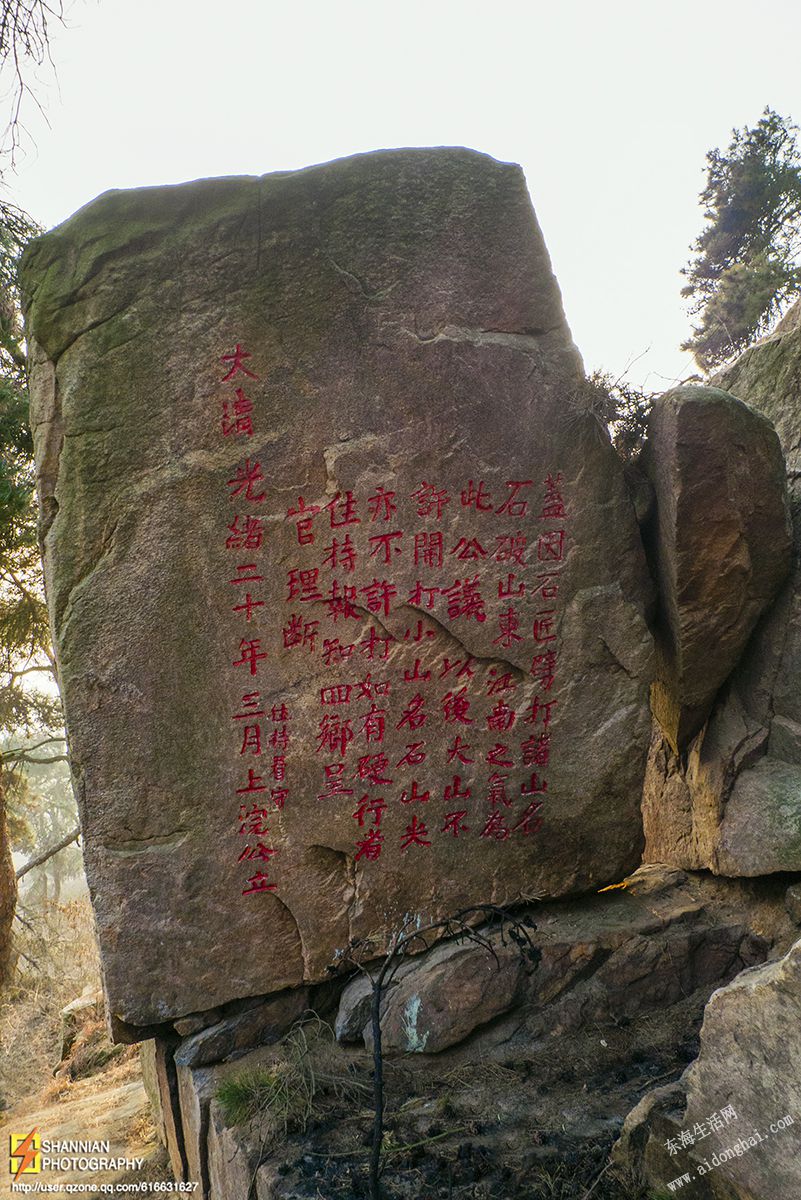 蓋因石匠劈打諸山名
石破山東江南之氣為
此公議以後大山不
許開打小山名石山尖
亦不許打如有硬行者
住持報知四鄉呈
官理斷
住持看守
大清光緒二十年三月上浣公立
SHANNIAN
PHOTOGRAPHY
http://user.qzone.qq.com/616631627
东海生活网
www.aidonghai.com